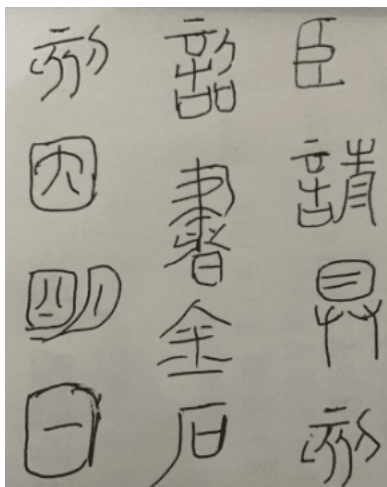 臣請具刻
詔書金石
刻因明白